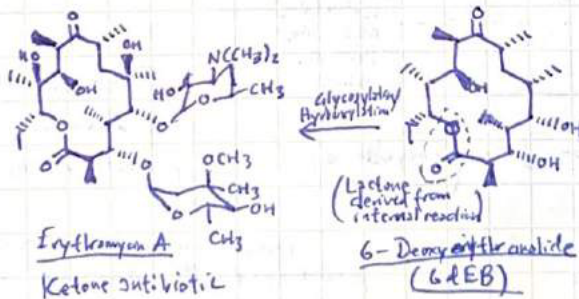 O
OH
HO
OH
N(CH₃)₂
HO
O
CH₃
O
O
O
OCH₃
CH₃
O
OH
CH₃
Erythromycin A
Ketone antibiotic
Glycosylation/
Hydroxylation
O
OH
OH
O
O
OH
(Lactone
derived from
internal reaction)
6-Deoxyerythronolide
(6dEB)